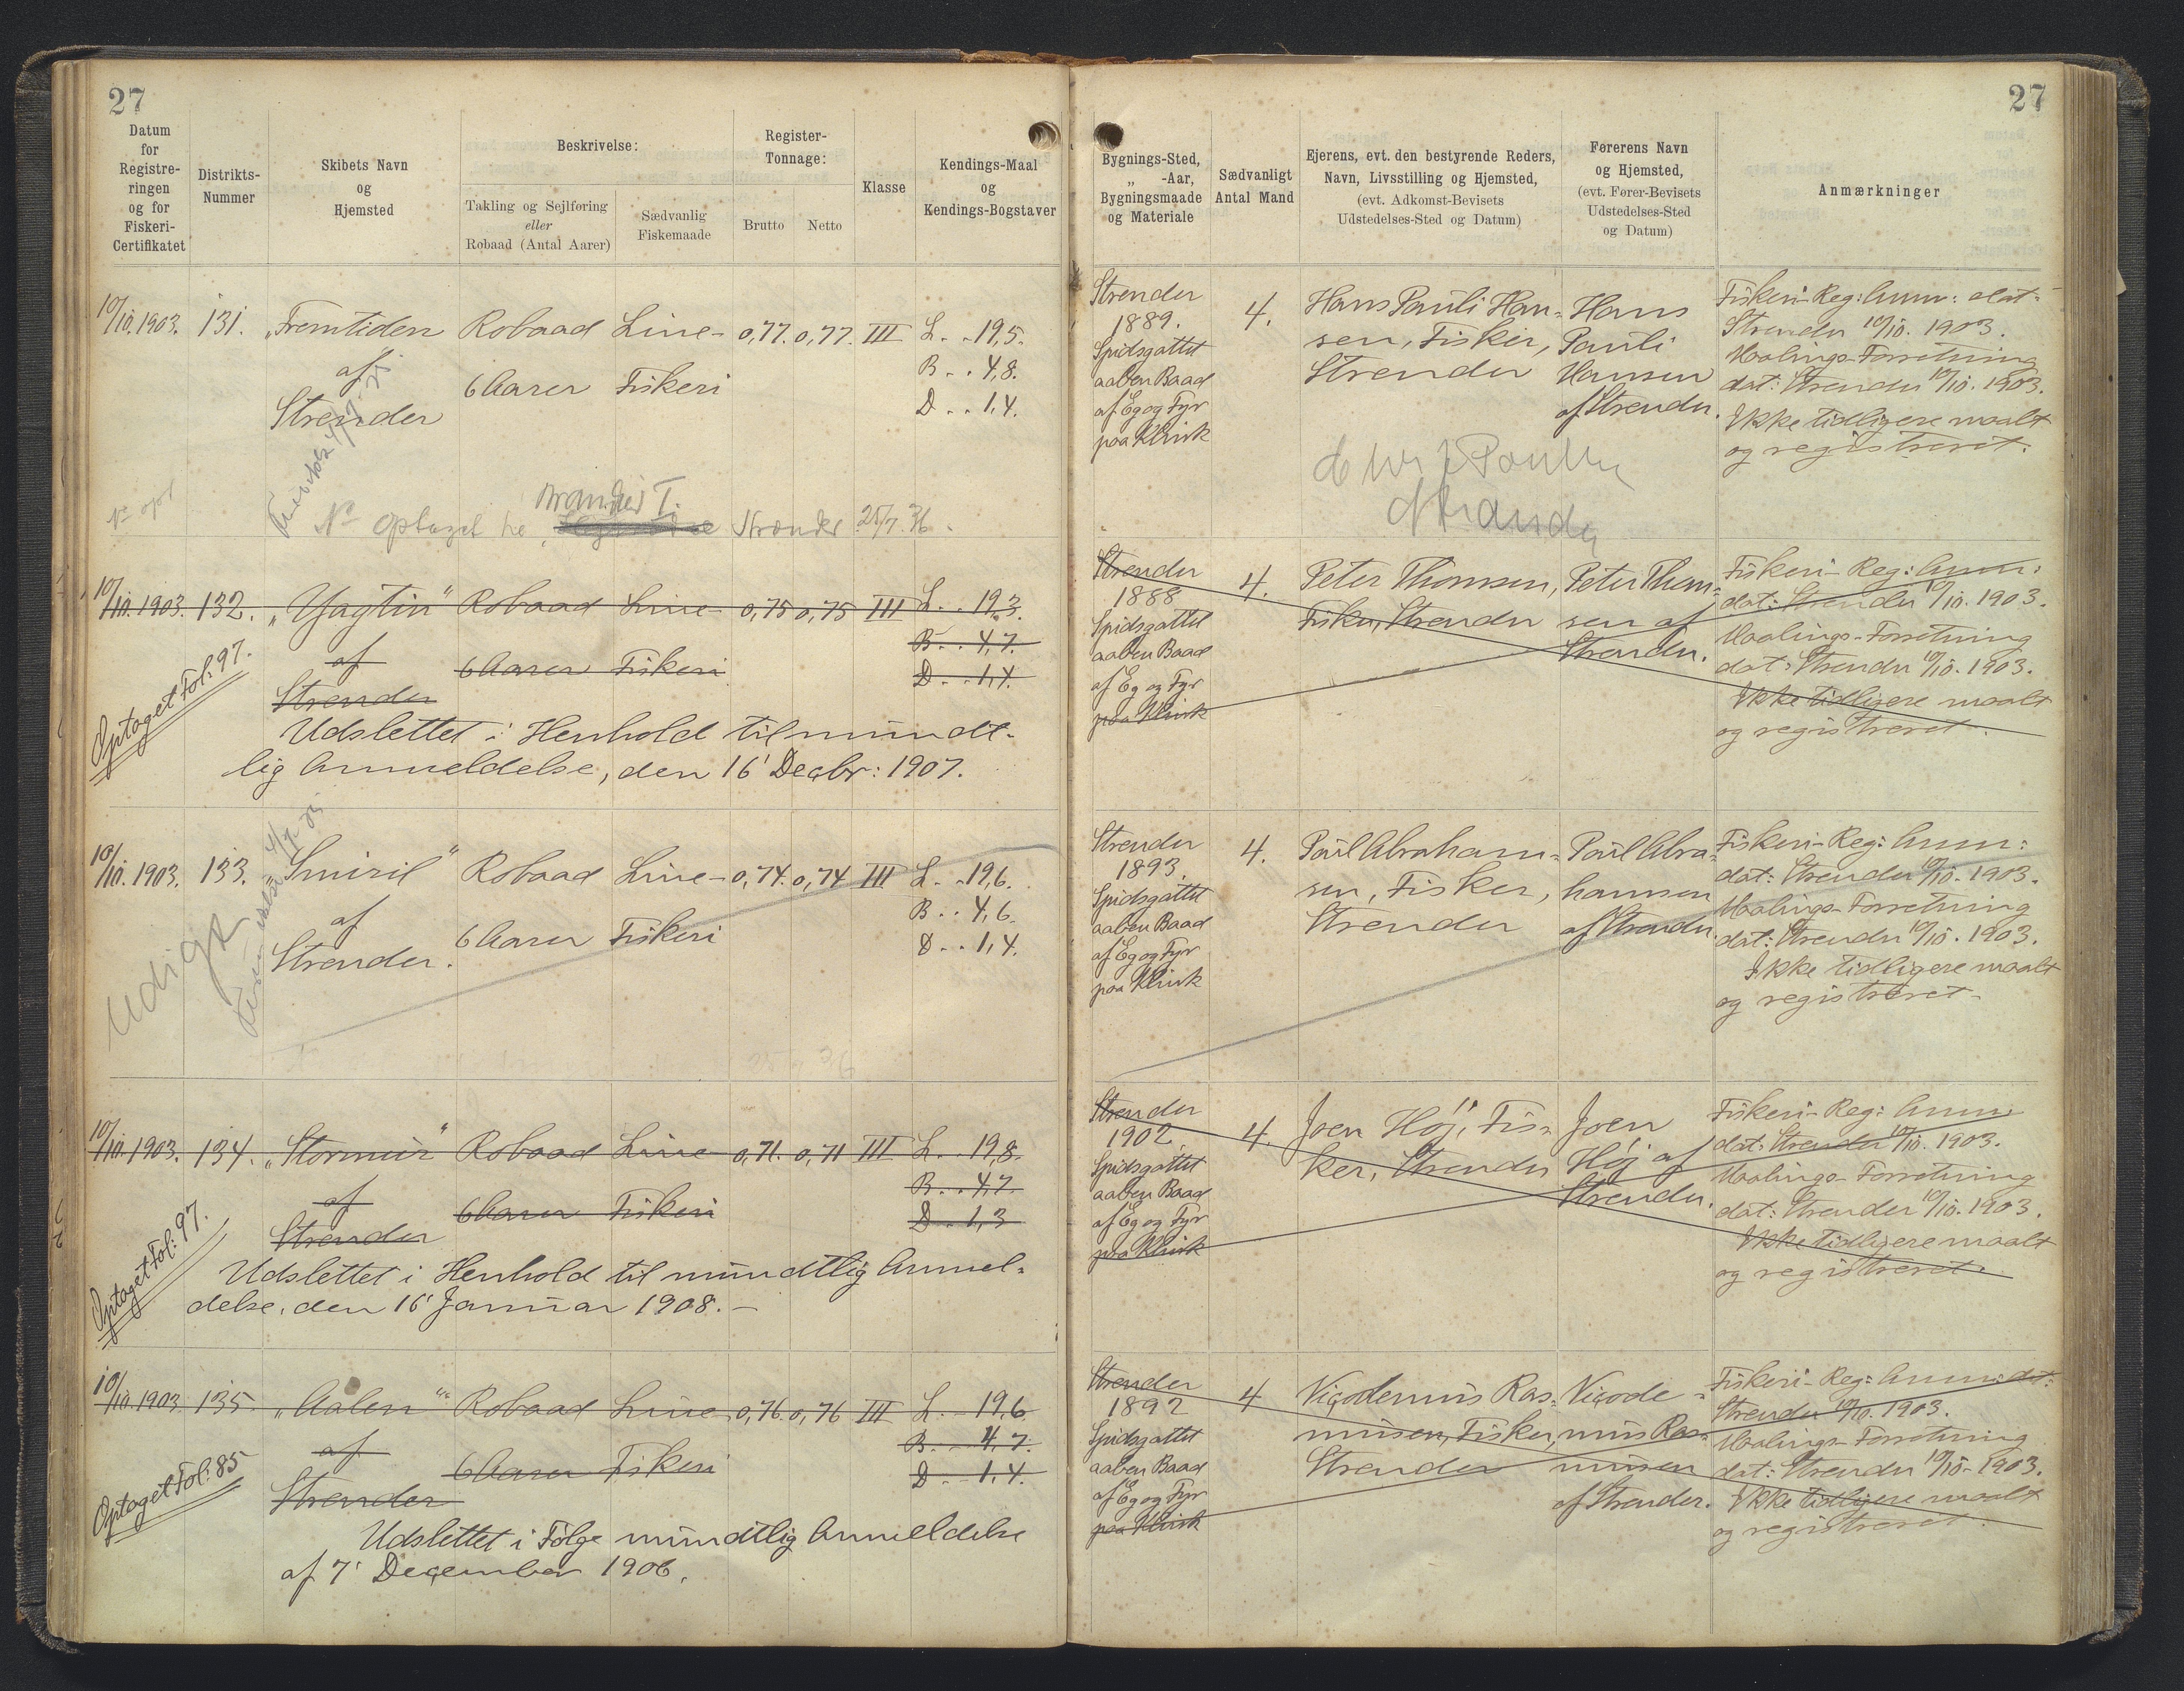 27
27
Datum
for
Registre-
ringen
og for
Fiskeri-
Certifikatet
Distrikts-
Nummer
Skibets Navn
og
Hjemsted
Beskrivelse:
Takling og Sejlføring
eller
Robaad (Antal Aarer)
Sædvanlig
Fiskemaade
Register-
Tonnage:
Brutto
Netto
Klasse
Kendings-Maal
og
Kendings-Bogstaver
Bygnings-Sted,
„ -Aar,
Bygningsmaade
og Materiale
Sædvanligt
Antal Mand
Ejerens, evt. den bestyrende Reders,
Navn, Livsstilling og Hjemsted,
(evt. Adkomst-Bevisets
Udstedelses-Sted og Datum)
Førerens Navn
og Hjemsted,
(evt. Fører-Bevisets
Udstedelses-Sted
og Datum)
Anmærkninger
10/10. 1903. 131. „Fremtiden Robaad Line- 0,77. 0,77. III L. . 19,5.
af
6 Aarer Fiskeri
B. . 4,8.
Strender
D. . 1,4.
Strender
1889.
Spidsgattet
aaben Baad
af Eg og Fyr
paa Klink
4.
Hans Pauli Han-
sen, Fisker,
Strender
Hans
Pauli
Hansen
af Strender.
Fiskeri-Reg: Anm: dat:
Strender 10/10. 1903.
Maalings-Forretning
dat: Strender 10/10. 1903.
Ikke tidligere maalt
og registreret.
No optaget Strender 25/7. 36.
10/10. 1903. 132. „Yagtin" Robaad Line- 0,75 0,75 III L. . 19,3.
af
6 Aarer Fiskeri
B. . 4,7.
Strender
D. . 1,4.
Optaget Fol: 97.
Udslettet i Henhold til mundt-
lig Anmeldelse, den 16' Decbr: 1907.
Strender
1888
Spidsgattet
aaben Baad
af Eg og Fyr
paa Klink
4.
Peter Thomsen,
Fisker, Strender
Peter Thom-
sen af
Strender.
Fiskeri-Reg: Anm:
dat: Strender 10/10. 1903.
Maalings-Forretning
dat: Strender 10/10. 1903.
Ikke tidligere maalt
og registreret.
10/10. 1903. 133. „Smiril" Robaad Line- 0,74. 0,74 III L. . 19,6.
af
6 Aarer Fiskeri
B. . 4,6.
Strender.
D. . 1,4.
Udigt
Strender
1893.
Spidsgattet
aaben Baad
af Eg og Fyr
paa Klink
4.
Paul Abraham-
sen, Fisker,
Strender
Paul Abra-
hamsen
af Strender.
Fiskeri-Reg: Anm:
dat: Strender 10/10. 1903.
Maalings-Forretning
dat: Strender 10/10. 1903.
Ikke tidligere maalt
og registreret.
10/10. 1903. 134. „Stormur" Robaad Line 0,71. 0,71 III L. . 19,8.
af
6 Aarer Fiskeri
B. . 4,7.
Strender
D. . 1,3
Optaget Fol: 97.
Udslettet i Henhold til mundtlig Anmel-
delse, den 16' Januar 1908. -
Strender
1902.
Spidsgattet
aaben Baad
af Eg og Fyr
paa Klink
4.
Joen Høj, Fis-
ker, Strender
Joen
Høj af
Strender.
Fiskeri-Reg: Anm:
dat: Strender 10/10. 1903.
Maalings-Forretning
dat: Strender 10/10. 1903.
Ikke tidligere maalt
og registreret.
10/10. 1903. 135. „Aalen" Robaad Line 0,76. 0,76 III L. 19,6
af
6 Aarer Fiskeri
B. . 4,7.
Strender
D. . 1,4.
Optaget Fol: 85
Udslettet i Følge mundtlig Anmeldelse
af 7' December 1906.
Strender
1892
Spidsgattet
aaben Baad
af Eg og Fyr
paa Klink
4
Nicodemus Ras-
musen, Fisker,
Strender
Nicode-
mus Ras-
musen
af Strender.
Fiskeri-Reg: Anm: dat:
Strender 10/10. 1903.
Maalings-Forretning
dat: Strender 10/10. 1903.
Ikke tidligere maalt
og registreret.